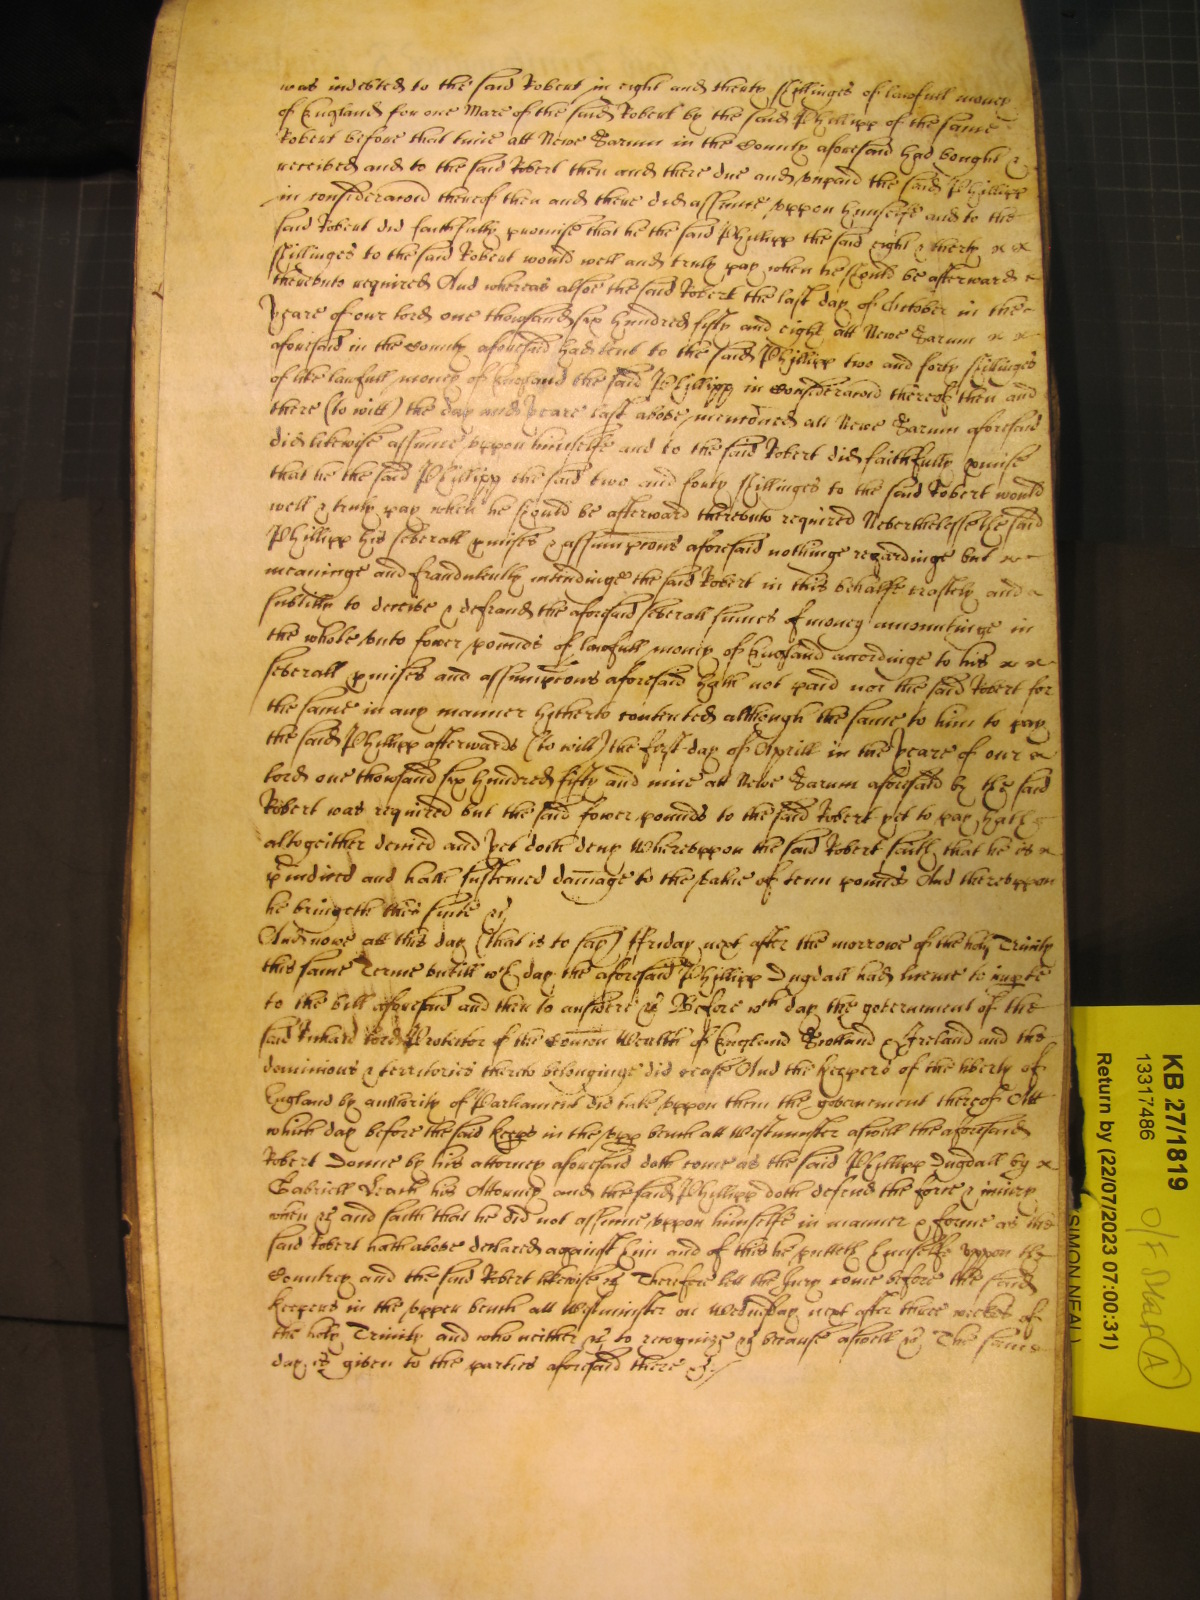 was indebted to the said Robert in eight and therty shillinges of lawfull money
of England for one Mare of the said Robert by the said Phillipp of the same
Robert before that time att Newe Sarum in the County aforesaid had bought &
received and to the said Robert then and there due and unpaid the said Phillipp
in consideracion thereof then and there did assume uppon himselfe and to the
said Robert did faithfully promise that he the said Phillipp the said eight & therty
shillinges to the said Robert would well and truly pay when he should be afterward
thereunto required And whereas alsoe the said Robert the last day of October in the
yeare of our lord one thowsand six hundred fifty and eight att Newe Sarum
aforesaid in the County aforesaid had lent to the said Phillipp two and forty shillinges
of like lawfull money of England the said Phillipp in consideracion thereof then and
there (to witt) the day and yeare last above mencioned att Newe Sarum aforesaid
did likewise assume uppon himselfe and to the said Robert did faithfully pmise
that he the said Phillipp the said two and forty shillinges to the said Robert would
well & truly pay when he should be afterward thereunto required Neverthelesse the said
Phillipp his severall pmises & assumpcons aforesaid nothinge regardinge but
meaninge and fraudulently intendinge the said Robert in this behalfe craftely and
subtilly to deceive & defraud the aforesaid severall sumes of money amountinge in
the whole unto fower pounds of lawfull money of England accordinge to his
severall pmises and assumpcons aforesaid hath not paid nor the said Robert for
the same in any manner hitherto contented although the same to him to pay
the said Phillipp afterwards (to witt) the first day of Aprill in the yeare of our
lord one thowsand six hundred fifty and nine att Newe Sarum aforesaid by the said
Robert was required but the said fower pounds to the said Robert yet to pay hath
altogeither denied and yet doth deny Whereuppon the said Robert saith that he is
piudiced and hath susteined damage to the value of tenn pounds And thereuppon
he bringeth this suite &c
And nowe att this day (that is to say) Friday next after the morrowe of the holy Trinity
this same Terme untill wch day the aforesaid Phillipp Dugdall had licence to impte
to the bill aforesaid and then to answere &c Before wch day the government of the
said Richard Lord Protector of the Comon Wealth of England Scotland & Ireland and the
dominions & territories thereto belonginge did cease And the keepers of the liberty of
England by authority of Parliament did take uppon them the governement thereof Att
which day before the said keeps in the upp bench att Westminster aswell the aforesaid
Robert Donne by his attorney aforesaid doth come as the said Phillipp Dugdall by
Gabriell his Attorney and the said Phillipp doth defend the force & iniury
when &c and saith that he did not assume uppon himselfe in manner & forme as the
said Robert hath above declared against him and of this he putteth himselfe uppon the
Countrey and the said Robert likewise &c Therefore lett the Jury come before the said
keepers in the upper bench att Westminster on Wednesday next after three weekes of
the holy Trinity and who neither &c to recognize &c because aswell &c The same
day is given to the parties aforesaid there &c
KB 27/1819
13317486
Return by (22/07/2023 07:00:31)
SIMON NEAL
A